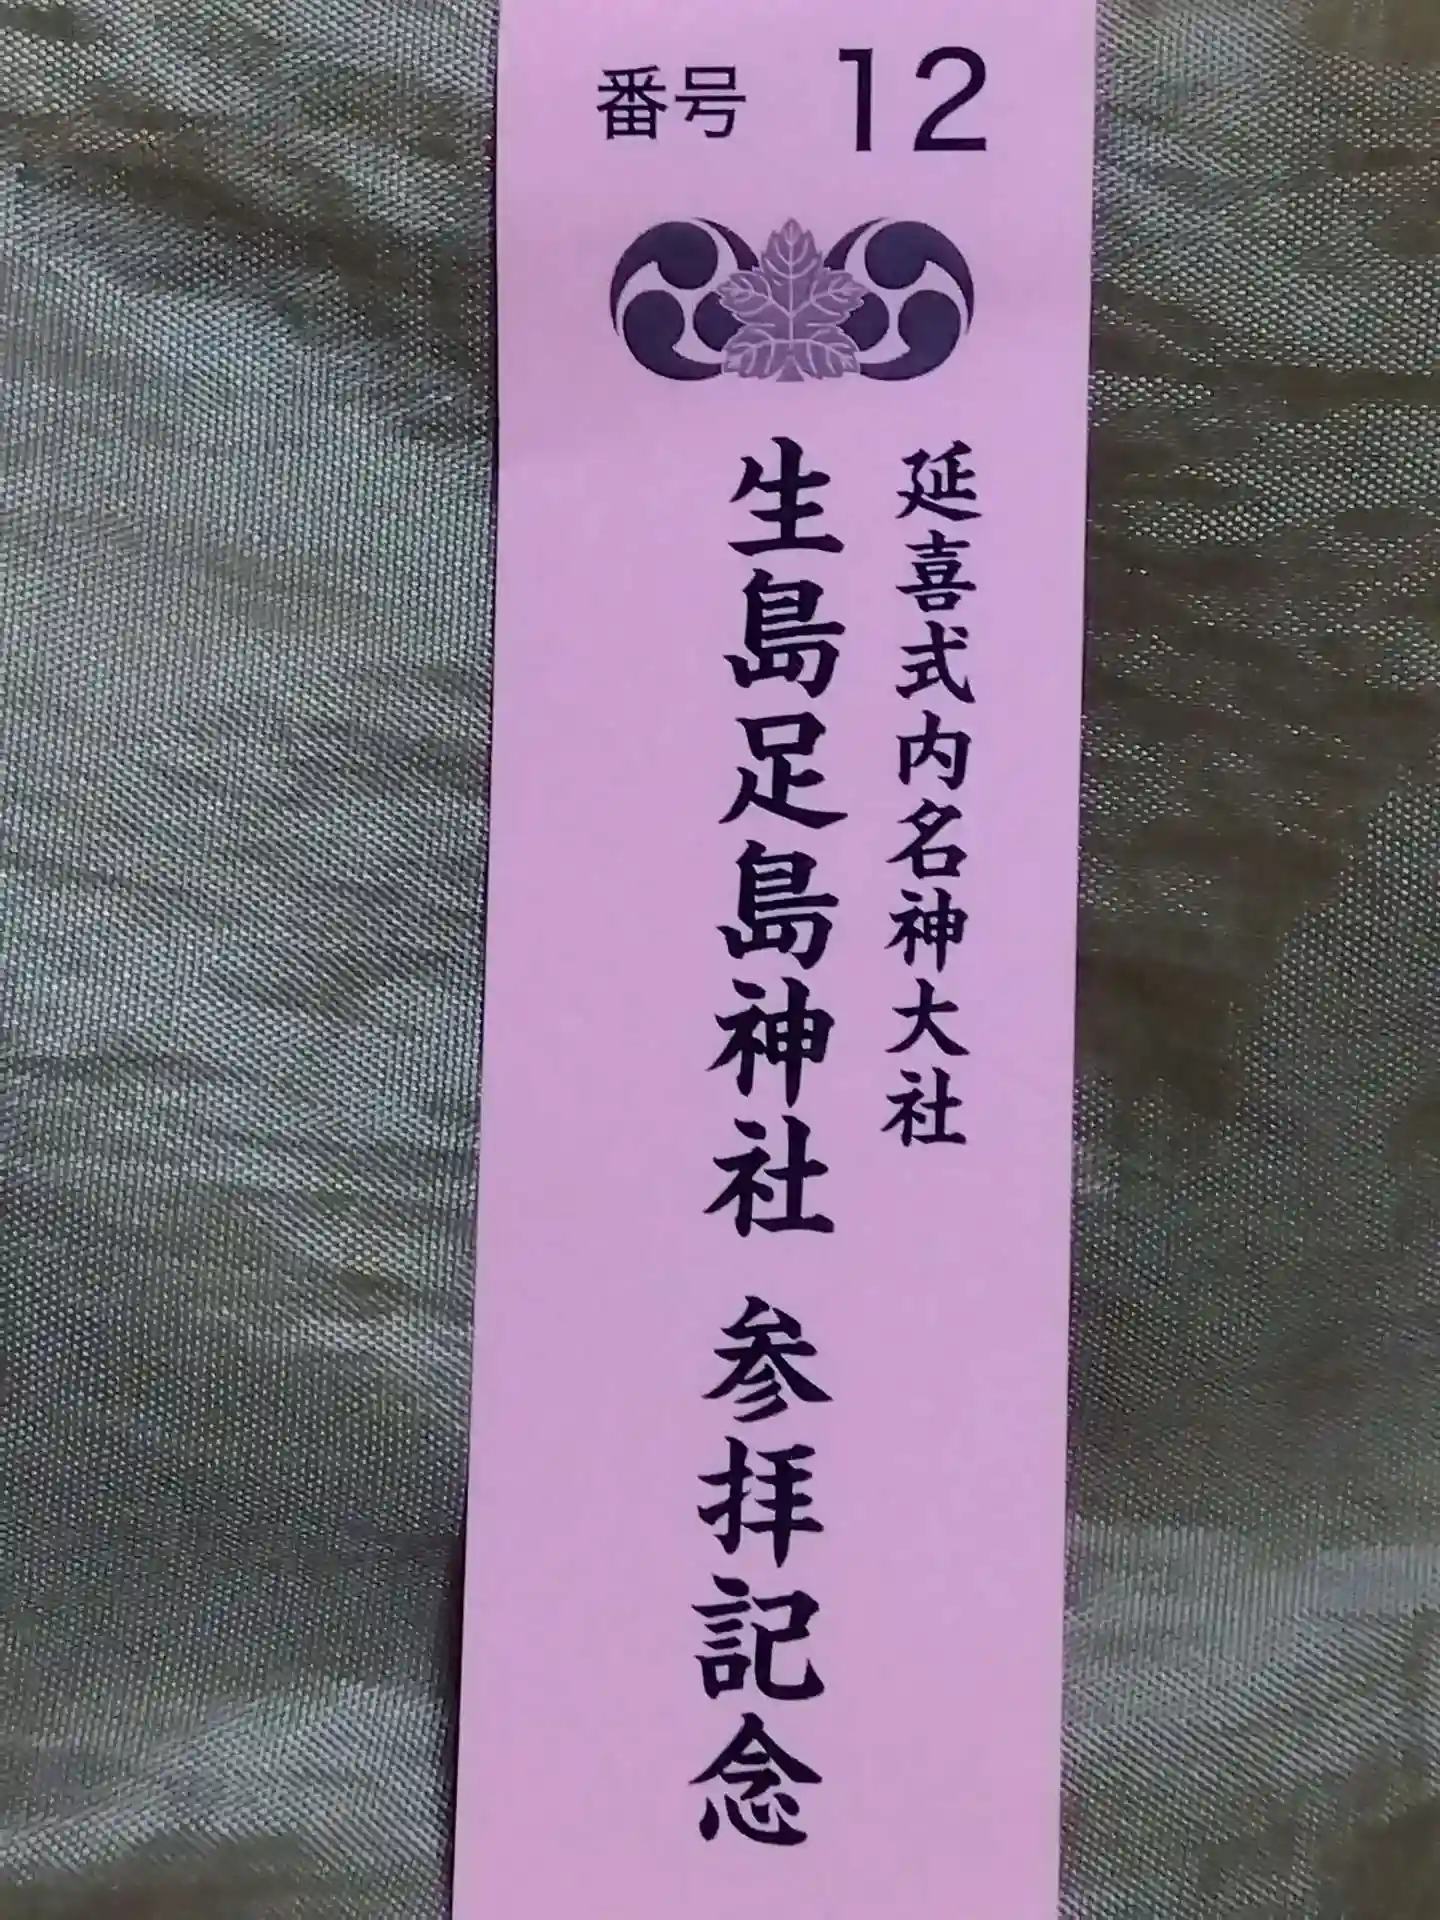 番号 12
延喜式内名神大社
生島足島神社 参拝記念